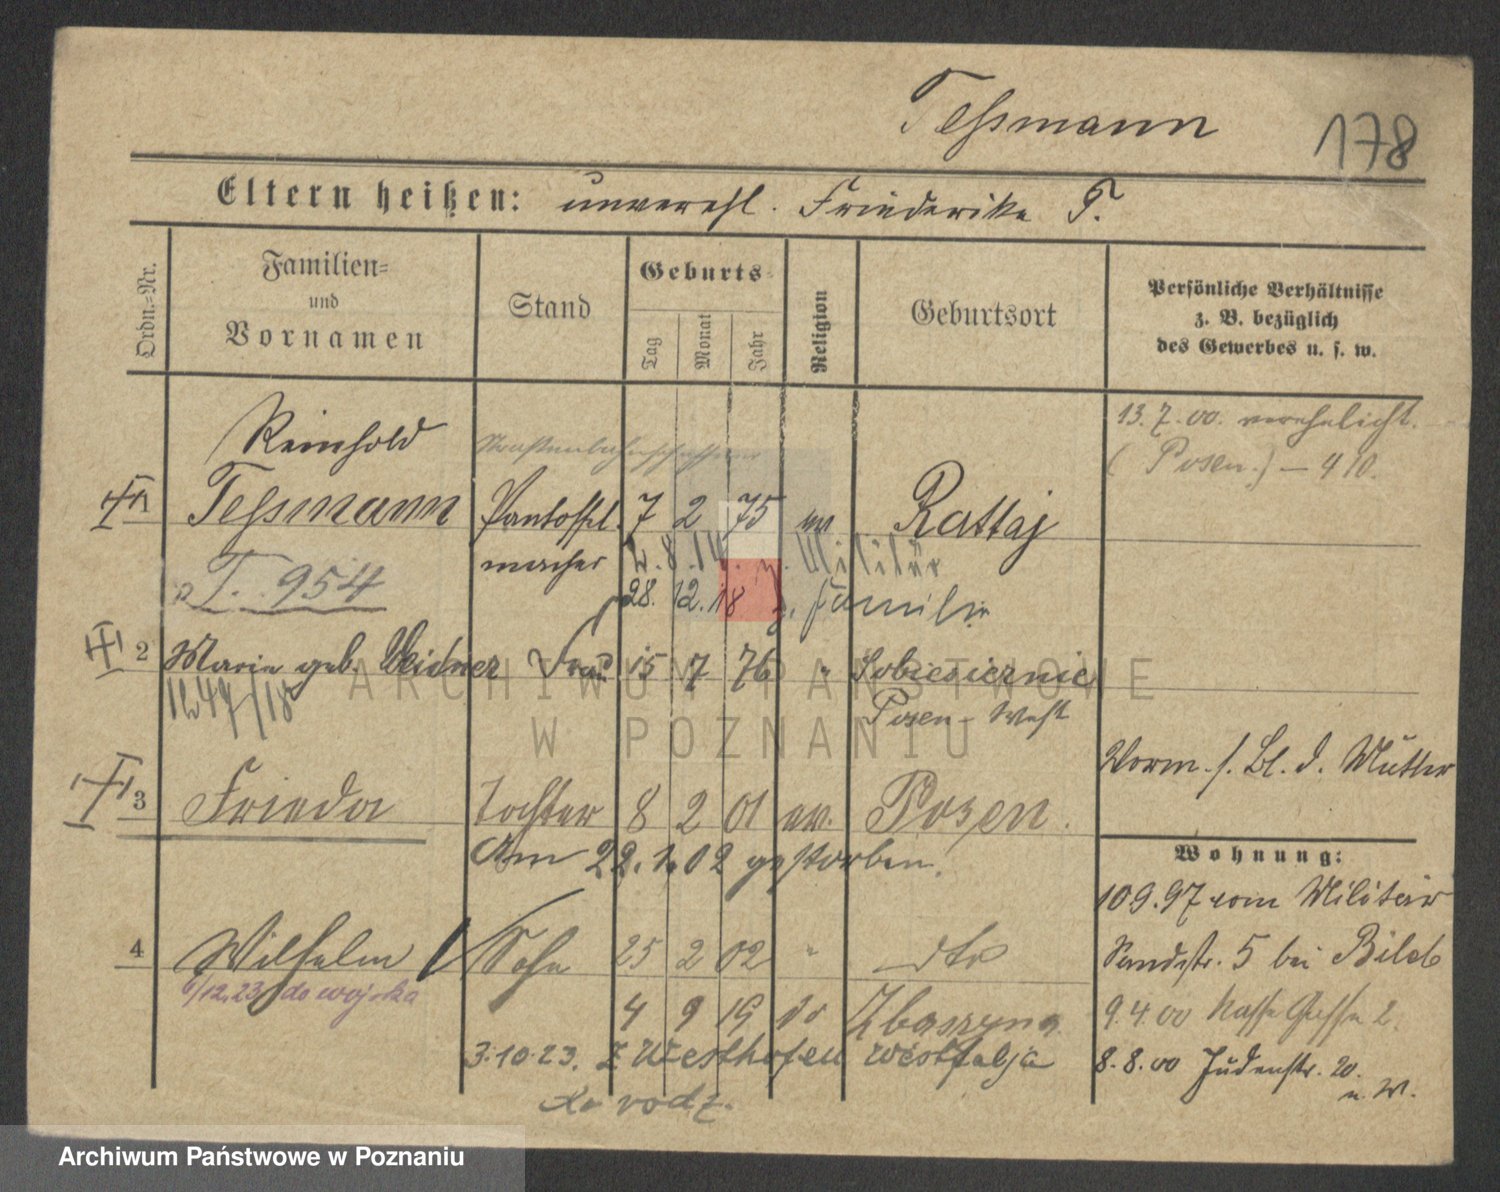 Teßmann
178
Eltern heißen: unverehl. Friederike T.
Ordn.=Nr.
Familien=
und
Vornamen
Stand
Geburts=
Tag
Monat
Jahr
Religion
Geburtsort
Persönliche Verhältnisse
z. B. bezüglich
des Gewerbes u. s. w.
13.7.00. verehelicht.
(Posen.) – 410.
Reinhold
1 Teßmann Pantoffel- 7 2 75 ev Rattaj
macher
2.8.14. z. Militär
28.12.18 z. Familie
T. 954
2 Marie geb. Weidner Frau 15 7 76 " Sobiesiernie
Posen-West
1247/18
Vorm. s. Bl. d. Mutter
3 Frieda Tochter 8 2 01 ev. Posen.
Am 22.1.02 gestorben.
4 Wilhelm Sohn 25 2 02 " dto
6/12.23 do wojska
4 9 19 do Zbaszyna
3.10.23. z Westhofen Westfalja
do rodz.
Wohnung:
10 9.97 vom Militair
Sandstr. 5 bei
9.4.00 Nasse Gasse 2.
8.8.00 Judenstr. 20.
u. W.
ARCHIWUM PAŃSTWOWE
W POZNANIU
Archiwum Państwowe w Poznaniu